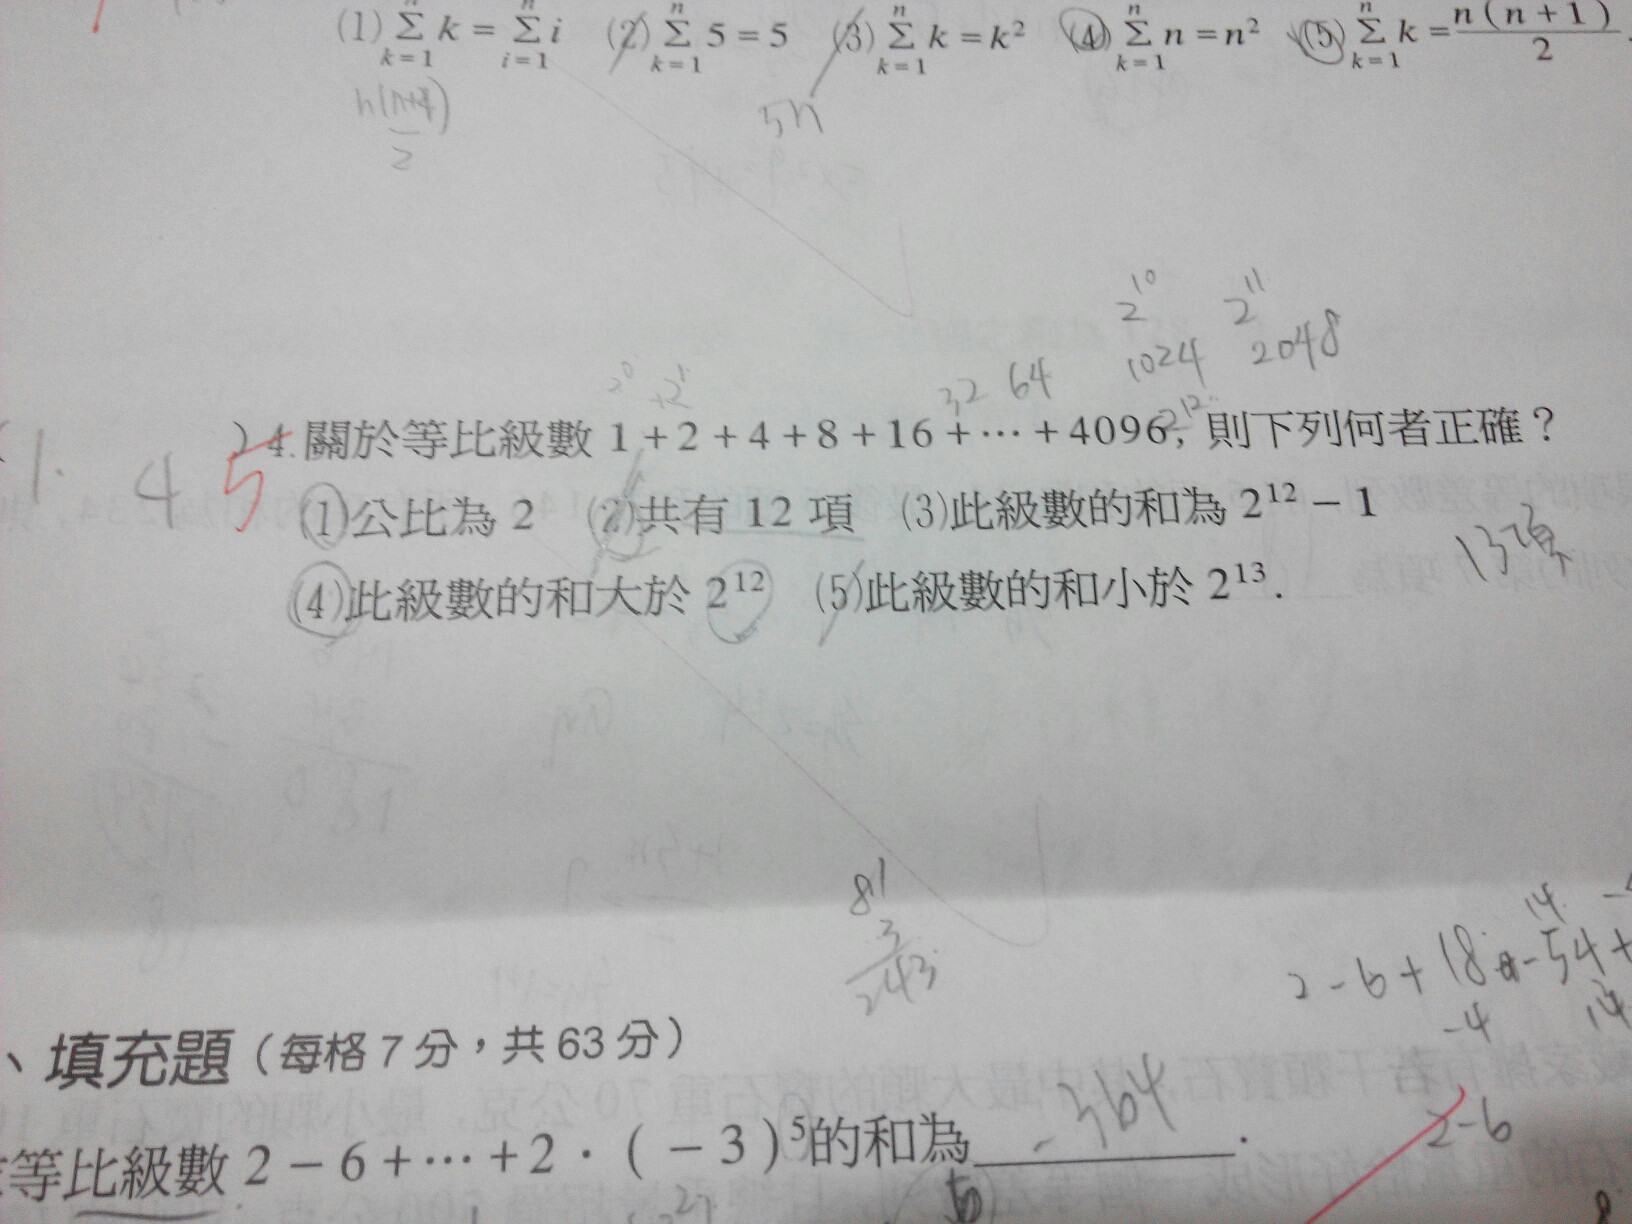 (1) n Σ k=1 k = n Σ i=1 i (2) n Σ k=1 5 = 5 (3) n Σ k=1 k = k² (4) n Σ k=1 n = n² (5) n Σ k=1 k = n(n+1)/2.
5n
2¹⁰ 2¹¹
1024 2048
2⁰ +2¹ 32 64 2¹²
1. 4 5
4.關於等比級數 1+2+4+8+16+⋯+4096,則下列何者正確?
(1)公比為 2 (2)共有 12 項 (3)此級數的和為 2¹²−1
13項
(4)此級數的和大於 2¹² (5)此級數的和小於 2¹³.
81
3
243
14
2-6+18-54+
-4 14
、填充題(每格 7 分,共 63 分)
等比級數 2−6+⋯+2·(−3)⁵的和為 -364.
2-6